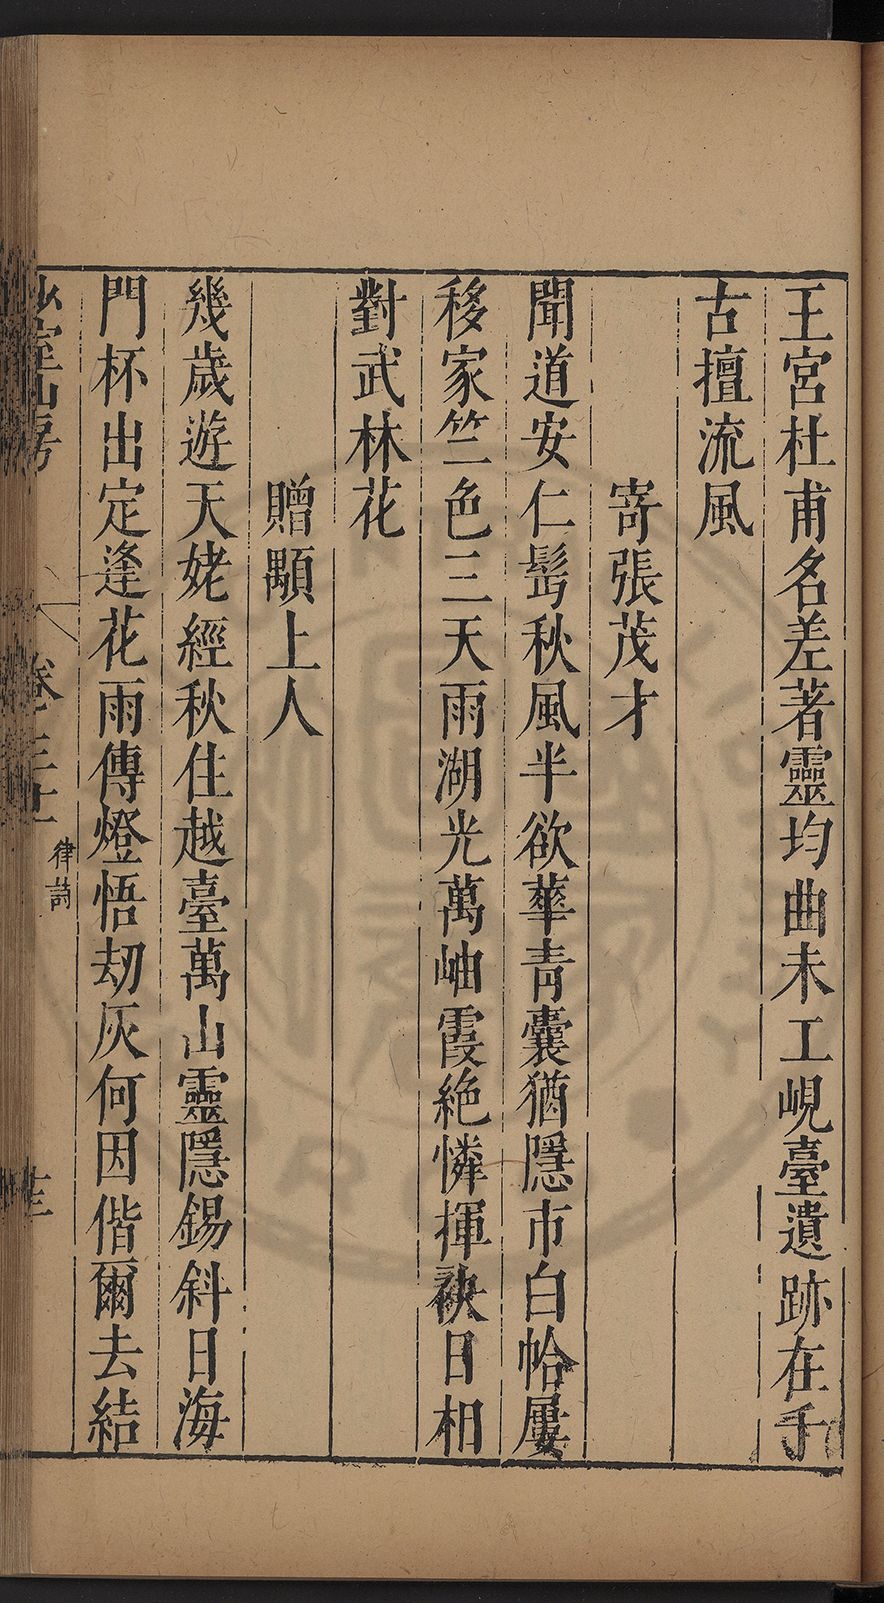 王宮杜甫名差著靈均曲未工峴臺遺跡在千
古擅流風
寄張茂才
聞道安仁髩秋風半欲華青囊猶隱市白帢屢
移家竺色三天雨湖光萬岫霞絶憐揮袂日相
對武林花
贈顒上人
幾歲遊天姥經秋住越臺萬山靈隱錫斜日海
門杯出定逢花雨傳燈悟刼灰何因偕爾去結
少室山房
卷之三十
律詩